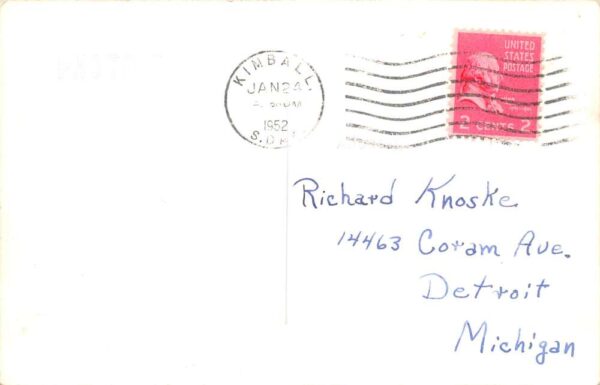 KIMBALL
JAN 24
PM
1952
S.DAK
UNITED
STATES
POSTAGE
2 CENTS 2
Richard Knoske
14463 Coram Ave.
Detroit
Michigan